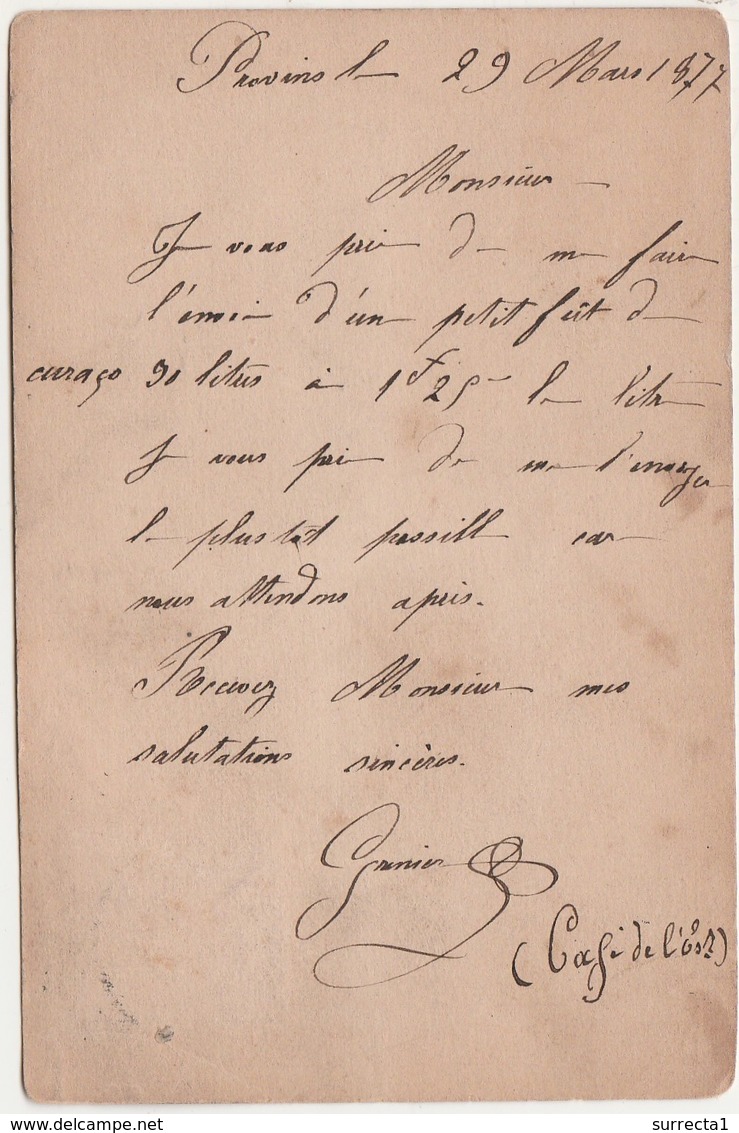 Provins le 29 Mars 1877
Monsieur
Je vous prie de me faire
l'envoie d'un petit fût de
curaço 30 litres à 1f 25 le litre
Je vous prie de me l'envoyer
le plus tôt possible car
nous attendons après.
Recevez Monsieur mes
salutations sincères.
Grenier
(Café de l'Est)
delcampe.net
surrecta1